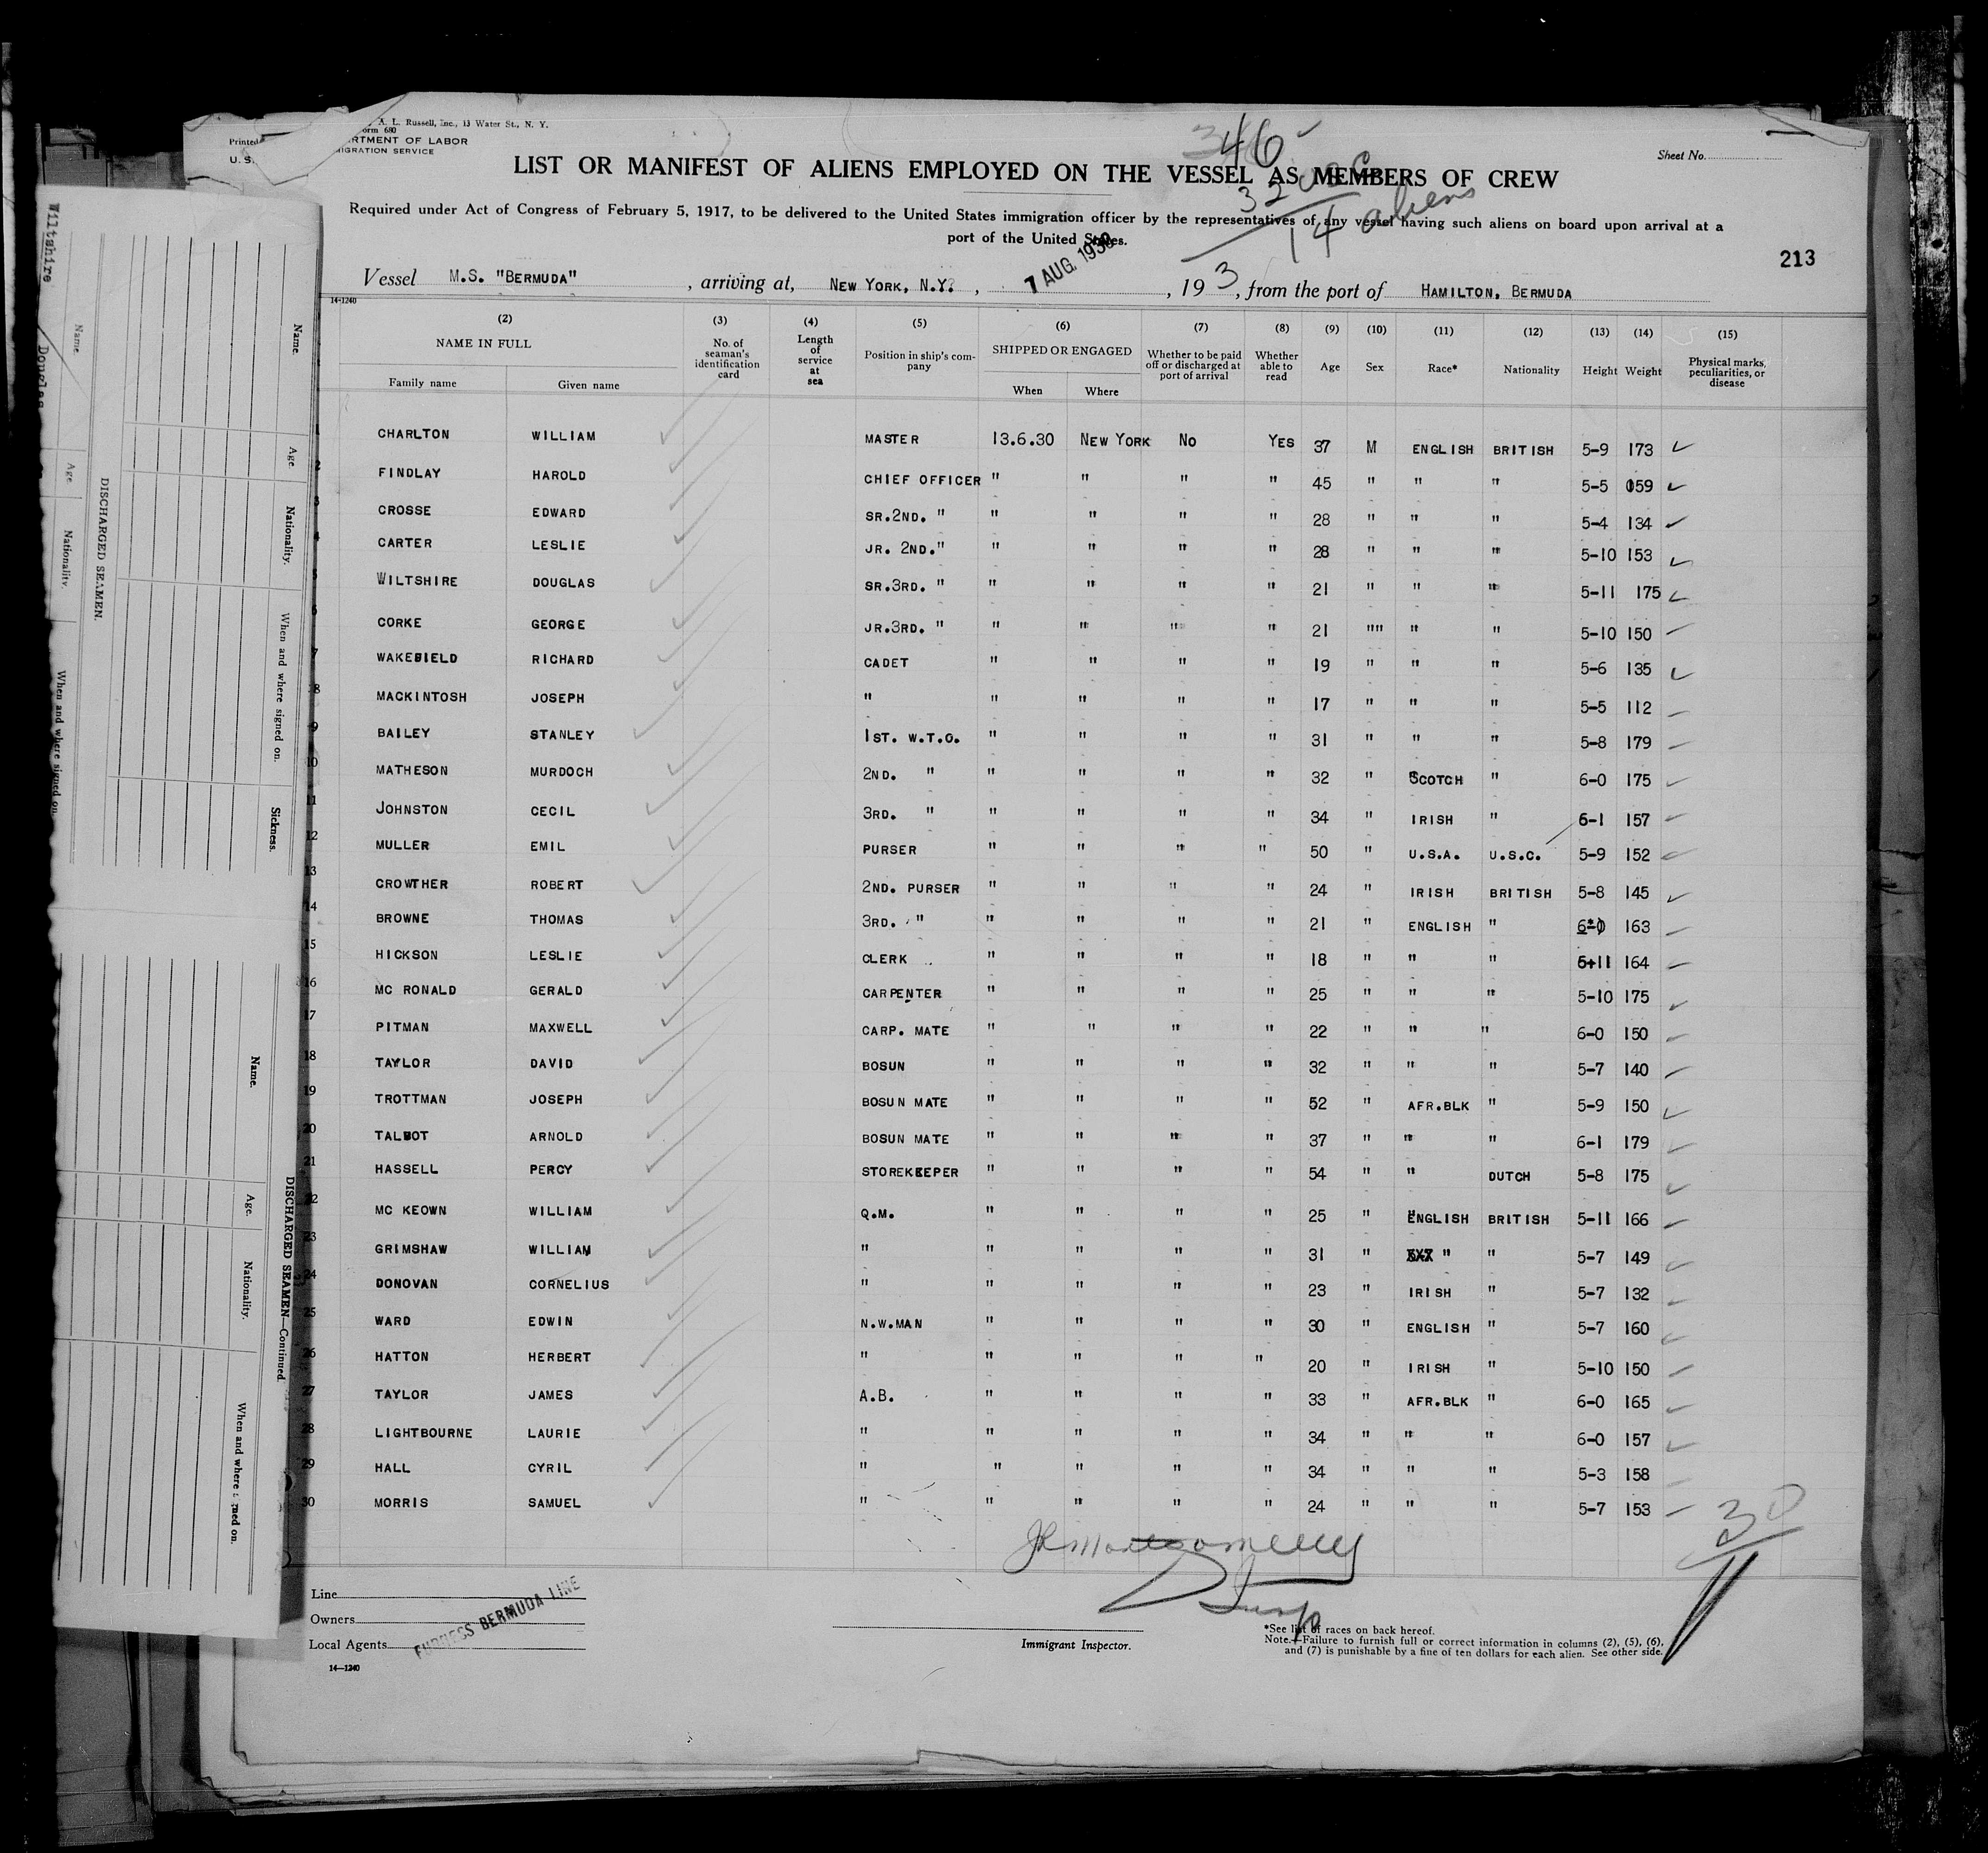 A. L. Russell, Inc., 13 Water St., N. Y.
Printed
orm 680
U. S. RTMENT OF LABOR
IGRATION SERVICE
346 ✓
Sheet No.
LIST OR MANIFEST OF ALIENS EMPLOYED ON THE VESSEL AS MEMBERS OF CREW
32 USC
14 aliens
Required under Act of Congress of February 5, 1917, to be delivered to the United States immigration officer by the representatives of any vessel having such aliens on board upon arrival at a
port of the United States.
213
Vessel M.S. "BERMUDA", arriving at, NEW YORK, N.Y., 7 AUG. 1930, 193, from the port of HAMILTON, BERMUDA
14-1240
(2) (3) (4) (5) (6) (7) (8) (9) (10) (11) (12) (13) (14) (15)
NAME IN FULL No. of seaman's identification card Length of service at sea Position in ship's company SHIPPED OR ENGAGED Whether to be paid off or discharged at port of arrival Whether able to read Age Sex Race* Nationality Height Weight Physical marks, peculiarities, or disease
Family name Given name When Where
1 CHARLTON WILLIAM MASTER 13.6.30 NEW YORK NO YES 37 M ENGLISH BRITISH 5-9 173 ✓
2 FINDLAY HAROLD CHIEF OFFICER " " " " 45 " " " 5-5 059 ✓
3 CROSSE EDWARD SR.2ND. " " " " " 28 " " " 5-4 134 ✓
4 CARTER LESLIE JR. 2ND." " " " " 28 " " " 5-10 153 ✓
5 WILTSHIRE DOUGLAS SR.3RD. " " " " " 21 " " " 5-11 175 ✓
6 CORKE GEORGE JR.3RD. " " " " " 21 "" " " 5-10 150
7 WAKEBIELD RICHARD CADET " " " " 19 " " " 5-6 135 ✓
8 MACKINTOSH JOSEPH " " " " " 17 " " " 5-5 112
9 BAILEY STANLEY 1ST. W.T.O. " " " " 31 " " " 5-8 179
10 MATHESON MURDOCH 2ND. " " " " " 32 " SCOTCH " 6-0 175
11 JOHNSTON CECIL 3RD. " " " " " 34 " IRISH " 6-1 157
12 MULLER EMIL PURSER " " " " 50 " U.S.A. U.S.C. 5-9 152
13 CROWTHER ROBERT 2ND. PURSER " " " " 24 " IRISH BRITISH 5-8 145 ✓
14 BROWNE THOMAS 3RD. " " " " " 21 " ENGLISH " 6-0 163
15 HICKSON LESLIE CLERK " " " " 18 " " " 5+11 164
16 MC RONALD GERALD CARPENTER " " " " 25 " " " 5-10 175 ✓
17 PITMAN MAXWELL CARP. MATE " " " " 22 " " " 6-0 150
18 TAYLOR DAVID BOSUN " " " " 32 " " " 5-7 140
19 TROTTMAN JOSEPH BOSUN MATE " " " " 52 " AFR.BLK " 5-9 150 ✓
20 TALBOT ARNOLD BOSUN MATE " " " " 37 " " " 6-1 179 ✓
21 HASSELL PERCY STOREKEEPER " " " " 54 " " DUTCH 5-8 175 ✓
22 MC KEOWN WILLIAM Q.M. " " " " 25 " ENGLISH BRITISH 5-11 166
23 GRIMSHAW WILLIAM " " " " " 31 " " " 5-7 149
24 DONOVAN CORNELIUS " " " " " 23 " IRISH " 5-7 132
25 WARD EDWIN N.W.MAN " " " " 30 " ENGLISH " 5-7 160
26 HATTON HERBERT " " " " " 20 " IRISH " 5-10 150
27 TAYLOR JAMES A.B. " " " " 33 " AFR.BLK " 6-0 165
28 LIGHTBOURNE LAURIE " " " " " 34 " " " 6-0 157
29 HALL CYRIL " " " " " 34 " " " 5-3 158
30 MORRIS SAMUEL " " " " " 24 " " " 5-7 153
30
Montgomery
Insp
Line
Owners
Local Agents
FURNESS BERMUDA LINE
Immigrant Inspector.
*See list of races on back hereof.
Note.—Failure to furnish full or correct information in columns (2), (5), (6),
and (7) is punishable by a fine of ten dollars for each alien. See other side.
14—1240
Wiltshire Douglas
Name. Age. Nationality. When and where signed on.
DISCHARGED SEAMEN.
Name. Age. Nationality. When and where signed on. Sickness.
Name. Age. Nationality. When and where signed on.
DISCHARGED SEAMEN—Continued.